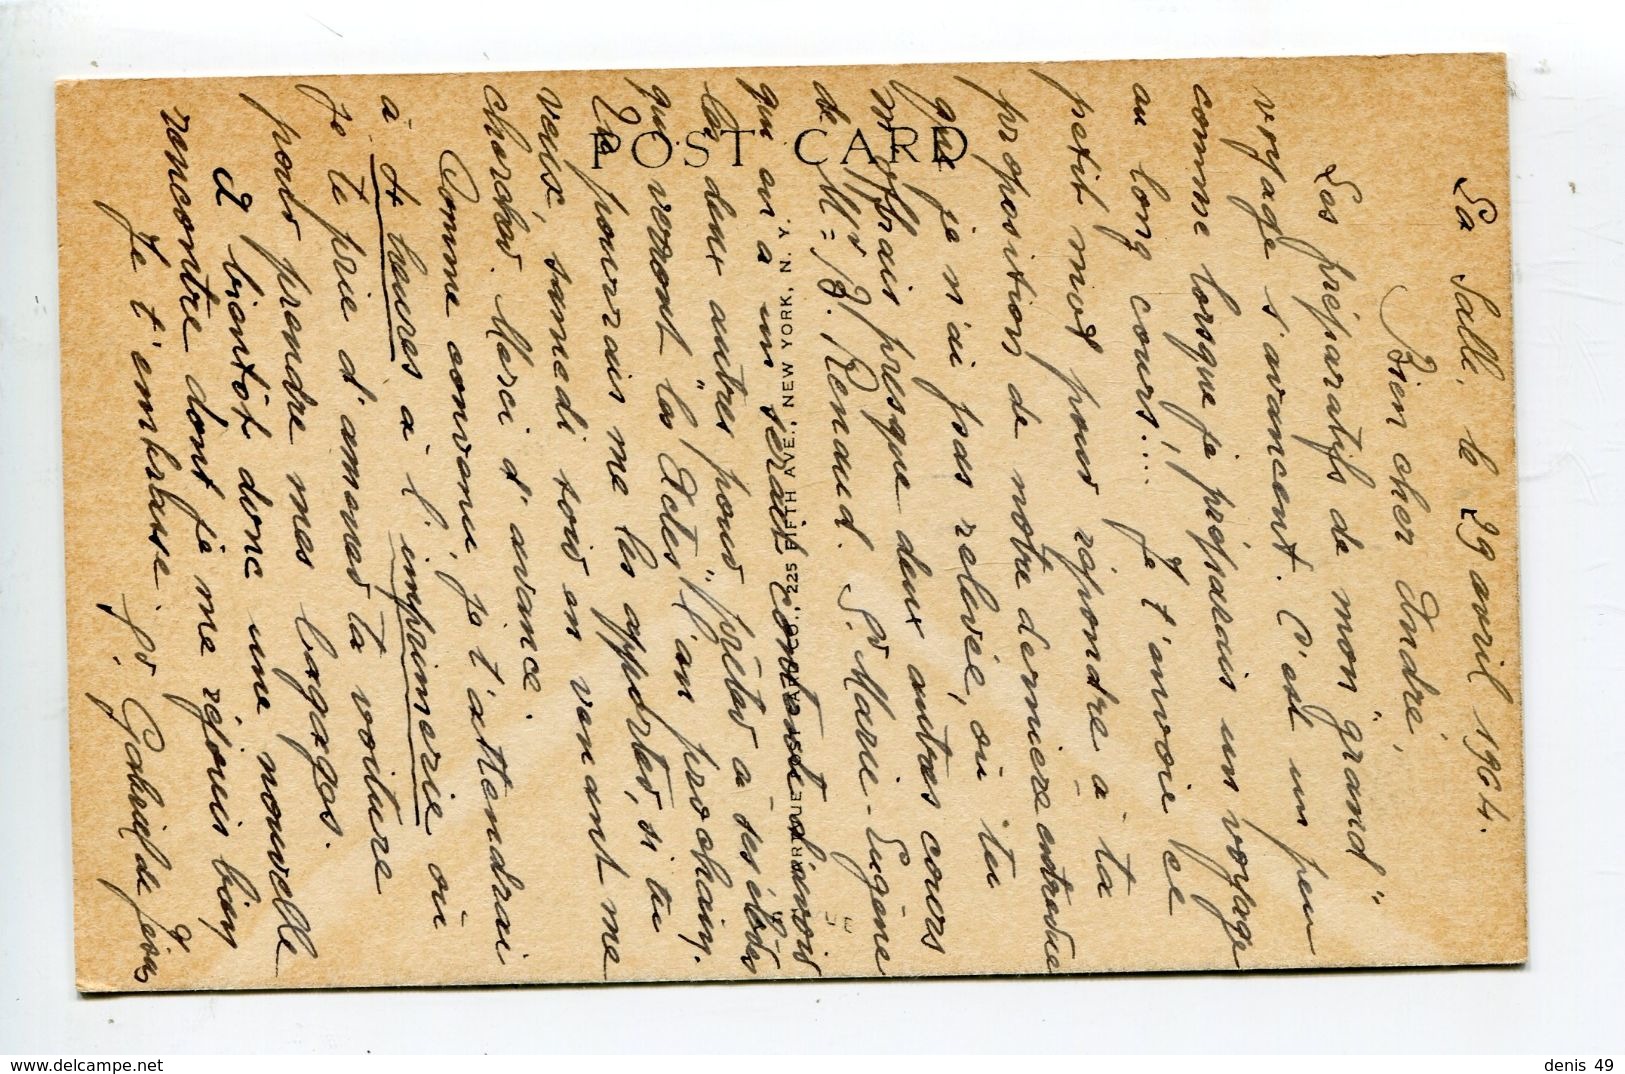 La Salle, le 29 avril 1964.
Bien cher André,
Les préparatifs de mon "grand"
voyage s'avancent. C'est un peu
comme lorsque je préparais un voyage
au long cours... Je t'envoie ce
petit mot pour répondre à ta
proposition de notre dernière entrevue
que je n'ai pas relevée, où tu
m'offrais presque deux autres cours
de M=gr J. Renaud. Sr Marie-Eugène
qui en a un serait contente d'avoir
les deux autres pour prêter à ses élèves
qui verront les "Actes" l'an prochain.
Tu pourrais me les apporter, si tu
veux, samedi soir en venant me
chercher. Merci d'avance.
Comme convenu, je t'attendrai
à 7 heures à l'imprimerie où
je te prie d'amener ta voiture
pour prendre mes bagages.
A bientôt donc une nouvelle
rencontre dont je me réjouis bien
Je t'embrasse. Sr. Gabriel de Jésus
POST CARD
CO., 225 FIFTH AVE., NEW YORK, N. Y.
denis 49